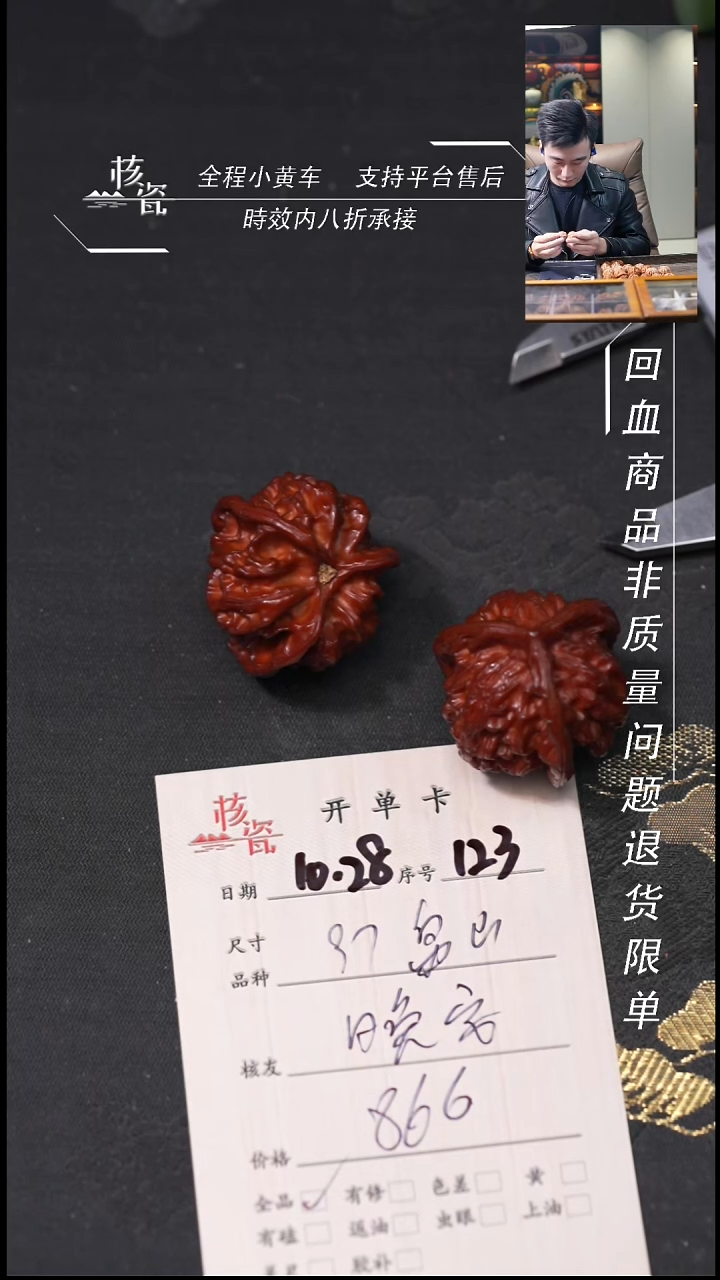 核瓷
全程小黄车 支持平台售后
時效内八折承接
回血商品非质量问题退货限单
核瓷
开单卡
日期 10.28 序号 123
尺寸 37
品种
晚安
核友
866
价格
全品 有修 色差 黄
有磕 返油 虫眼 上油
胶补